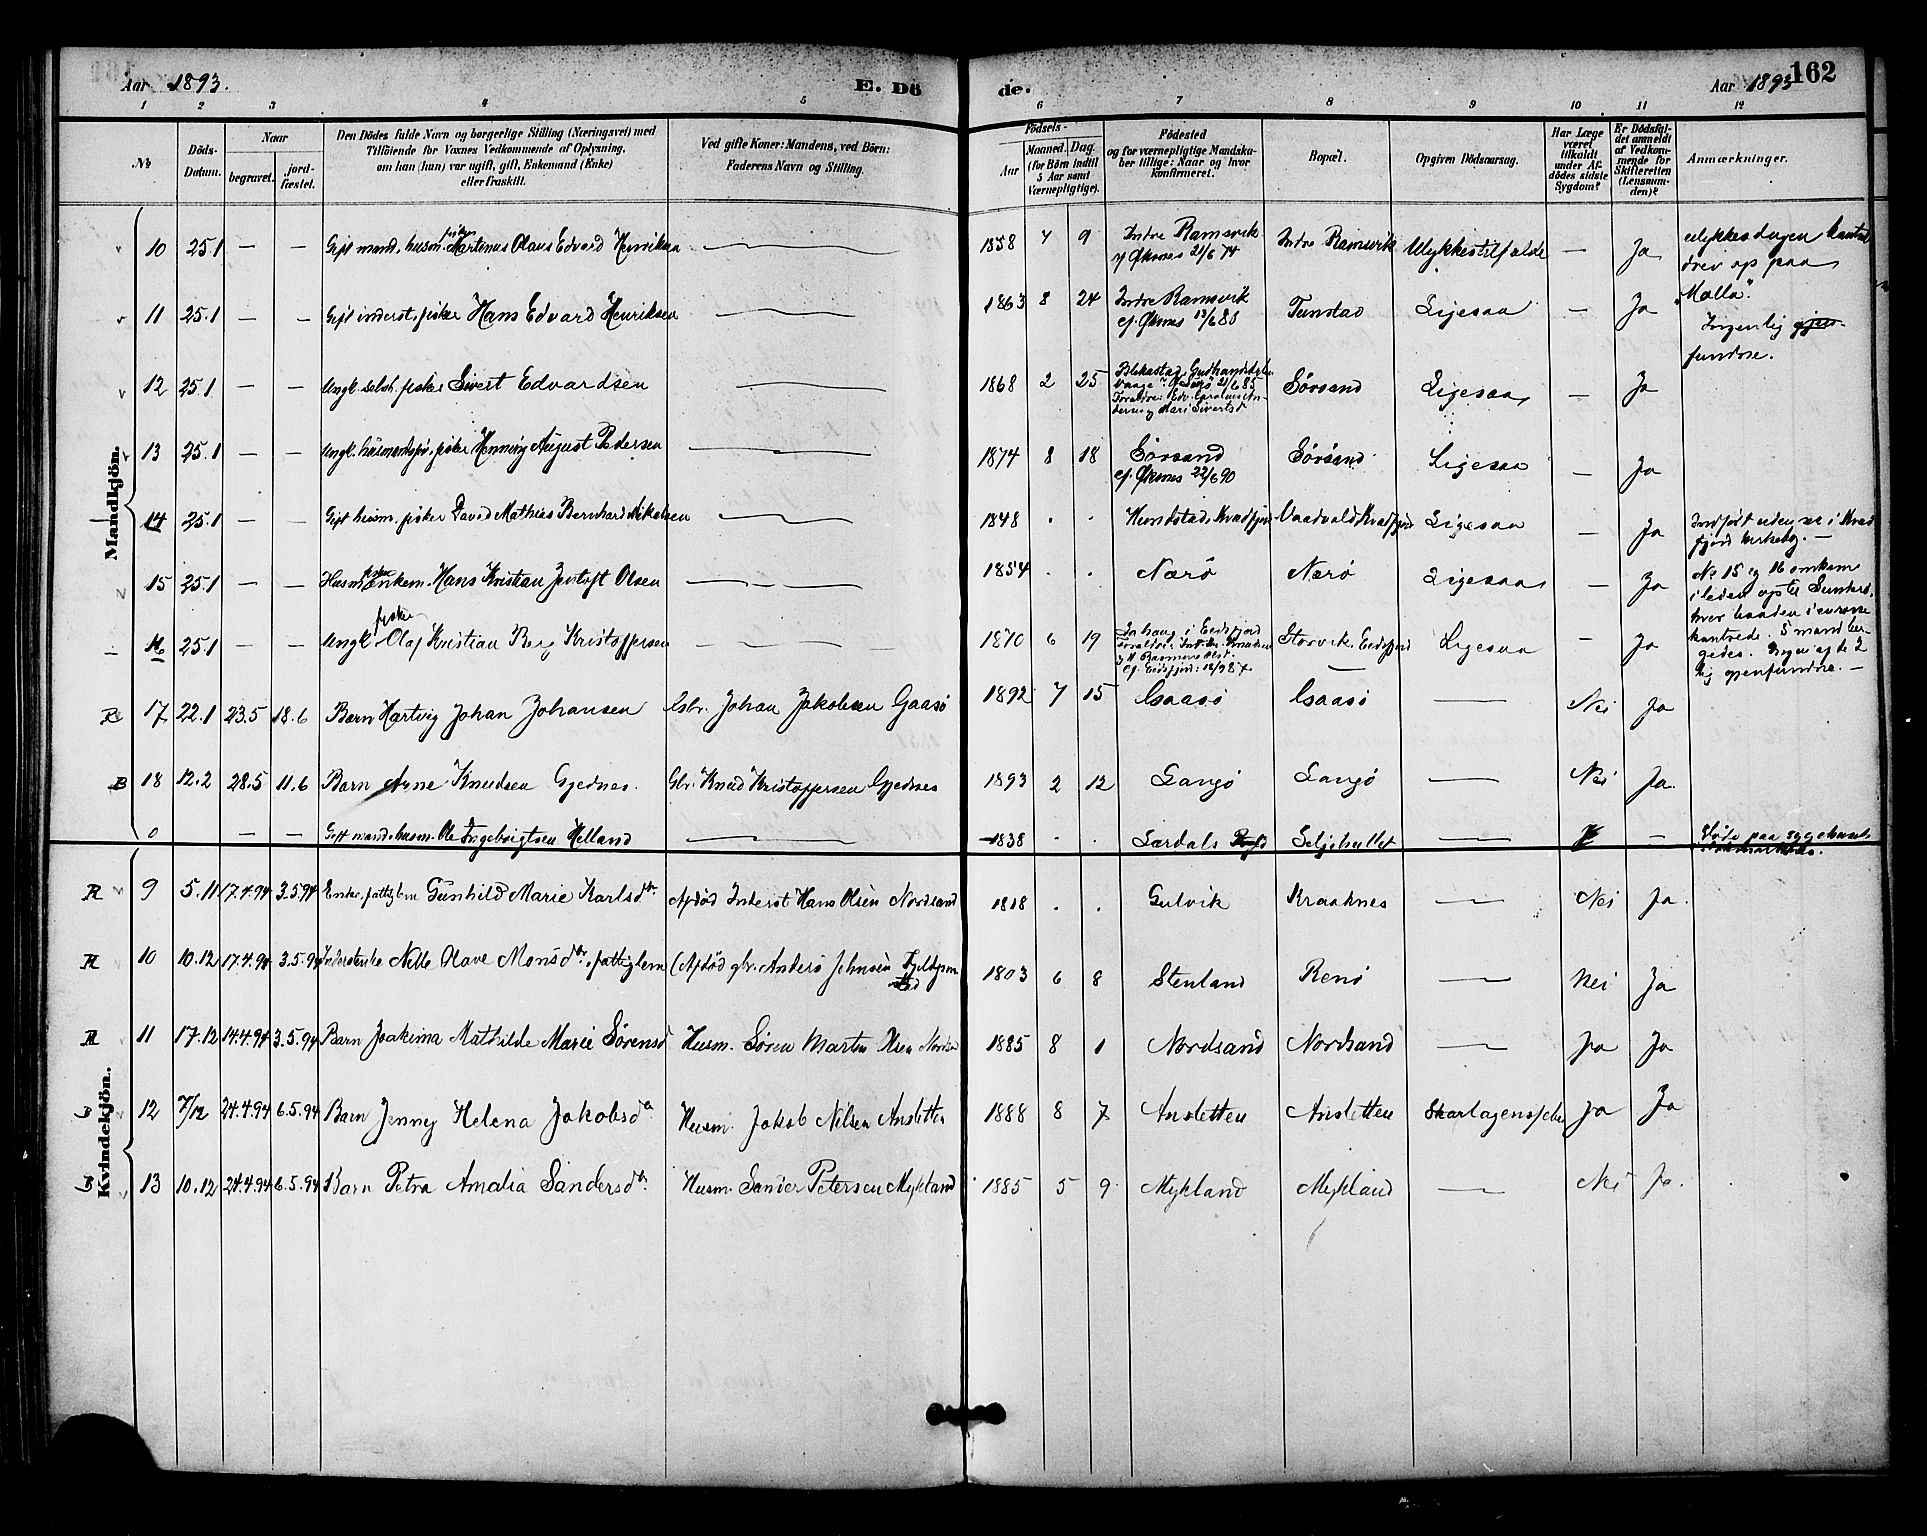 Aar 1893. E. Dö de. Aar 1893 162
1 2 3 4 5 6 7 8 9 10 11 12
No
Döds-Datum.
Naar
begravet.
jord-fæstet.
Den Dödes fulde Navn og borgerlige Stilling (Næringsvei) med
Tilföiende for Voxnes Vedkommende af Oplysning,
om han (hun) var ugift, gift, Enkemand (Enke)
eller fraskilt.
Ved gifte Koner: Mandens, ved Börn:
Faderens Navn og Stilling.
Födsels-
Aar
Maaned. Dag.
(for Börn indtil
5 Aar samt
Værnepligtige).
Födested
og for værnepligtige Mandska-
ber tillige: Naar og hvor
konfirmeret.
Bopæl.
Opgiven Dödsaarsag.
Har Læge
været
tilkaldt
under Af-
dödes sidste
Sygdom?
Er Dödsfal-
det anmeldt
af Vedkom-
mende for
Skifteretten
(Lensman-
den)?
Anmærkninger.
Mandkjön.
10 25.1 — — Gift mand, husm. fisker Martenus Olaus Edvard Henriksen — 1858 7 9 Indre Ramsvik Indre Ramsvik Ulykkestilfælde — Ja
Øksnes 21/6 74
ulykkesdagen kantret
drev op paa
"Malla".
11 25.1 — — Gift inderst, fisker Hans Edvard Henriksen — 1863 8 24 Indre Ramsvik Tunstad Ligesaa — Ja
cf. Øksnes 13/6 80
Ingen lig gjen-
fundne.
12 25.1 — — Ungk. selvst. fisker Sivert Edvardsen — 1868 2 25 Sørsand Ligesaa — Ja
13 25.1 — — Ungk. husmandssøn, fisker Henning August Pedersen — 1874 8 18 Sørsand Sørsand Ligesaa — Ja
cf. Øksnes 22/6 90
14 25.1 — — Gift husm. fisker David Mathias Bernhard Mikalsen — 1848 . . Hundstad, Kvædfjord Vaadvold Kvædfjord Ligesaa — Ja
Indført uden no i Kvæd
fjord kirkebog. —
15 25.1 — — Husm. fisker Enkem. Hans Kristian Jentoft Olsen — 1854 . . Nærø Nærø Ligesaa — Ja
No 15 og 16 omkom
i leden op til Sunderø,
hvor baaden i eurosne
kantrede. 5 mand ber-
gedes. Ingen af de 2
lig gjenfundne. —
16 25.1 — — Ungk fisker Olaf Kristian Berg Kristoffersen — 1870 6 19 i Eidsfjord Storvik. Eidsfjord Ligesaa — Ja
R 17 22.1 23.5 18.6 Barn Hartvig Johan Johansen Gbr. Johan Jakobsen Gaasø 1892 7 15 Gaasø Gaasø — Nei Ja
B 18 12.2 28.5 11.6 Barn Arne Knudsen Gjednes. Gbr. Knud Kristoffersen Gjednes 1893 2 12 Langø Langø — Nei Ja.
0 — — Gift mand, husm. Ole Ingebrigtsen Helland — 1838 . . Lærdals Seljehullet — Døde paa sygehuset
Kvindekjön.
R 9 5.11 17.4.94 3.5.94 Enke, fattiglem Gunhild Marie Karlsdtr. Afdød Inderst Hans Olsen Nordsand 1818 . . Gulvik Kraaknes — Nei Ja.
R 10 10.12 17.4.94 3.5.94 Inderstenke Nille Olave Monsdtr, fattiglem (Afdød gbr. Anders Johnsen 1803 6 8 Stenland Renø — Nei Ja
R 11 17.12 14.4.94 3.5.94 Barn Joakima Mathilde Marie Sørensd Husm. Søren Martin Olsen Nordsa 1885 8 1 Nordsand Nordsand — Ja Ja
B 12 7/12 24.4.94 6.5.94 Barn Jenny Helena Jakobsdr Husm. Jakob Nilsen Ansletten 1888 8 7 Ansletten Ansletten Skarlagensfeber Ja Ja
B 13 10.12 24.4.94 6.5.94 Barn Petra Amalia Sandersdtr. Husm. Sander Petersen Mykland 1885 5 9 Mykland Mykland — Nei Ja.